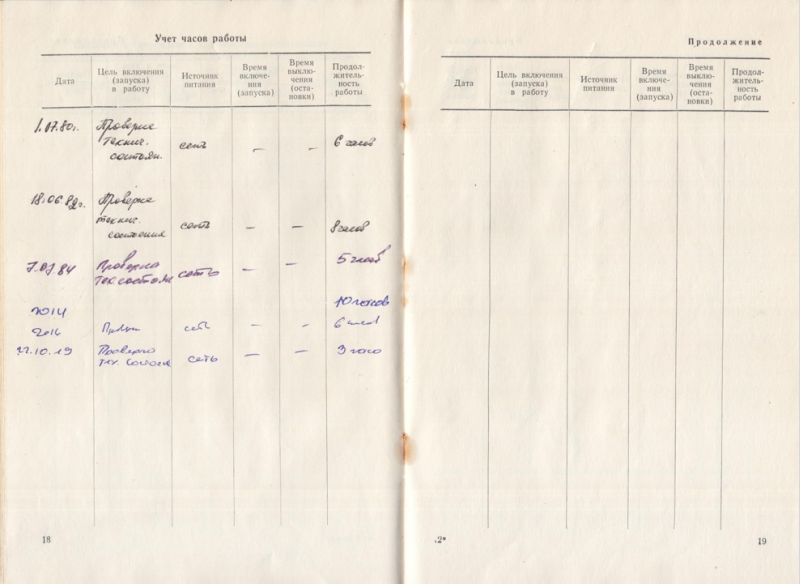 Учет часов работы
Дата
Цель включения
(запуска)
в работу
Источник
питания
Время
включе-
ния
(запуска)
Время
выклю-
чения
(оста-
новки)
Продол-
житель-
ность
работы
1.07.80г.
Проверке
технич.
состоян.
сеть
—
—
6 часов
18.06.82г.
Проверке
технич.
состояния
сеть
—
—
8 часов
7.07.84
Проверка
тех. состоян
сеть
—
—
5 часов
2014
10 часов
2016
сеть
—
—
6 часов
22.10.19
Проверка
тех.
сеть
—
—
3
18
Продолжение
Дата
Цель включения
(запуска)
в работу
Источник
питания
Время
включе-
ния
(запуска)
Время
выклю-
чения
(оста-
новки)
Продол-
житель-
ность
работы
2*
19